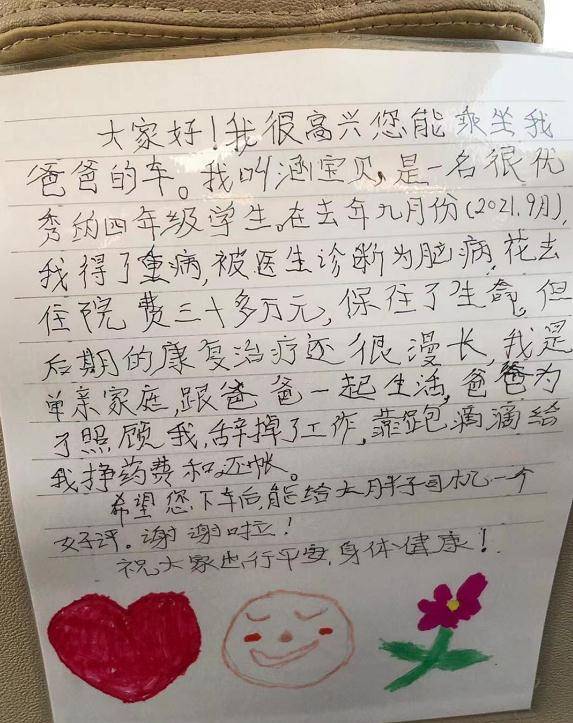 大家好!我很高兴您能乘坐我
爸爸的车。我叫涵宝贝,是一名很优
秀的四年级学生。在去年九月份(2021.9月),
我得了重病,被医生诊断为脑病,花去
住院费三十多万元,保住了生命,但
后期的康复治疗还很漫长,我是
单亲家庭,跟爸爸一起生活,爸爸为
了照顾我,辞掉了工作,靠跑滴滴给
我挣药费和还帐。
希望您下车后,能给大胖子司机一个
好评。谢谢啦!
祝大家出行平安,身体健康!